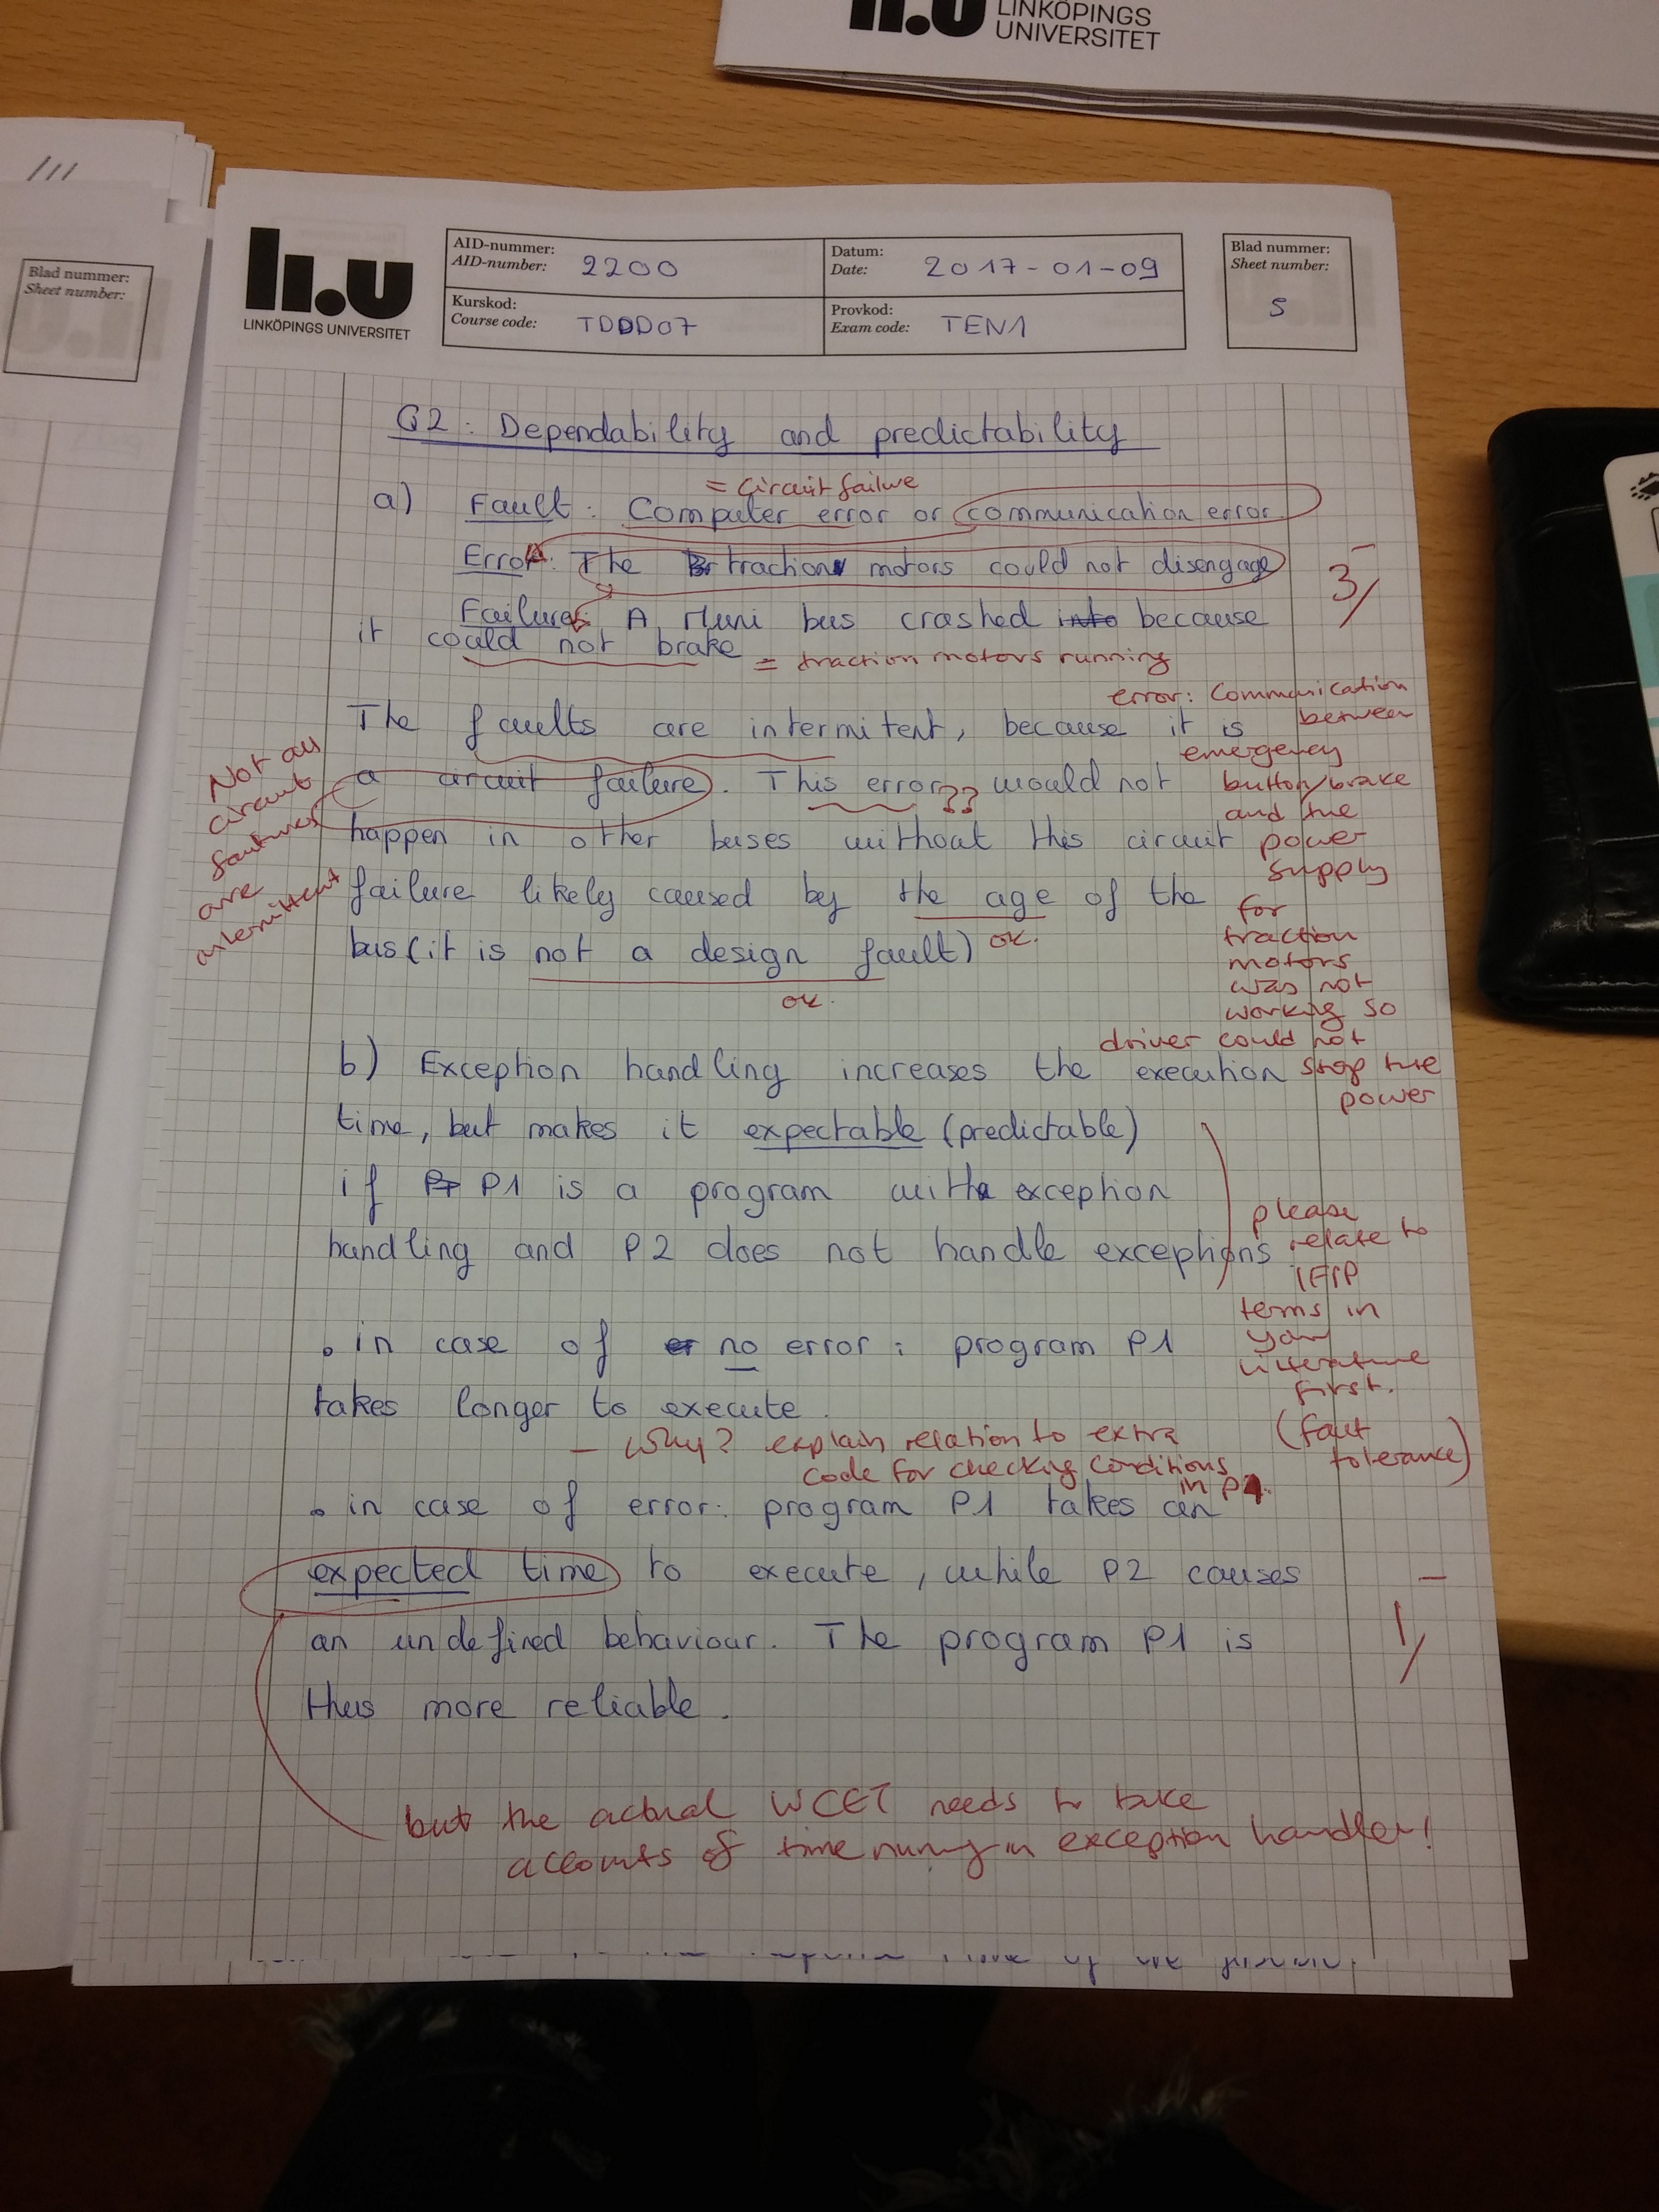 LINKÖPINGS
UNIVERSITET
Blad nummer:
Sheet number:
LINKÖPINGS UNIVERSITET
AID-nummer:
AID-number: 2200
Datum:
Date: 2017-01-09
Blad nummer:
Sheet number:
5
Kurskod:
Course code: TDDD07
Provkod:
Exam code: TEN1
Q2: Dependability and predictability
= Circuit failure
a) Fault: Computer error or communication error.
Error: The traction motors could not disengage
3/
Failure: A Muni bus crashed into because
it could not brake
= traction motors running
error: Communication
between
emergency
button/brake
and the
power
supply
for
traction
motors
was not
working so
driver could not
stop the
power
The faults are intermitent, because it is
a circuit failure). This error?? would not
happen in other buses without this circuit
failure likely caused by the age of the
bus (it is not a design fault) ok.
ok.
Not all
circuit
are
intermittent
b) Exception handling increases the execution
time, but makes it expectable (predictable)
if P1 is a program with exception
handling and P2 does not handle exceptions
please
relate to
IFIP
terms in
your
literature
first.
(fault
tolerance)
. in case of no error: program P1
takes longer to execute.
- Why? explain relation to extra
code for checking conditions
in P1.
. in case of error: program P1 takes an
expected time to execute, while P2 causes
an undefined behaviour. The program P1 is
thus more reliable.
1/
but the actual WCET needs to take
accounts of time running in exception handler!